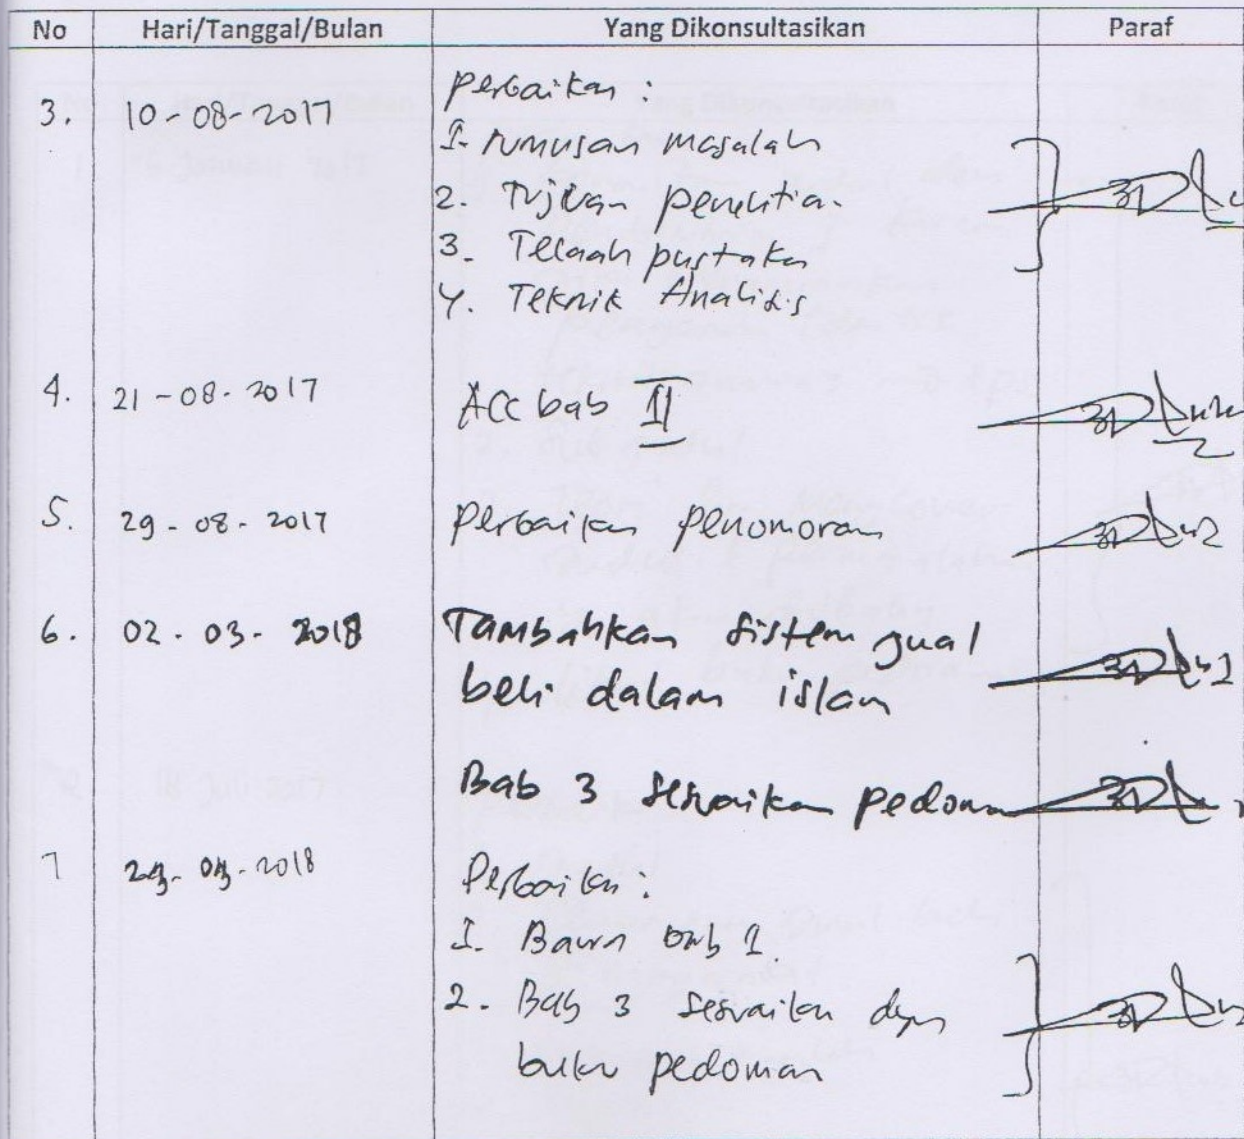 No Hari/Tanggal/Bulan Yang Dikonsultasikan Paraf
3. 10-08-2017 Perbaikan :
1. rumusan masalah
2. Tujuan penelitian
3. Telaah pustaka
4. Teknik Analisis
4. 21-08-2017 ACC bab II
5. 29-08-2017 perbaikan penomoran
6. 02-03-2018 Tambahkan sistem jual
beli dalam islam
Bab 3 sesuaikan pedoman
7 2018 Perbaikan :
1. bab 1.
2. Bab 3 sesuaikan dgn
buku pedoman